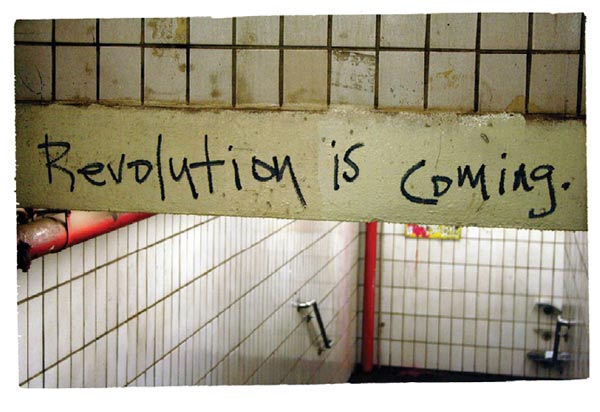 Revolution is coming.